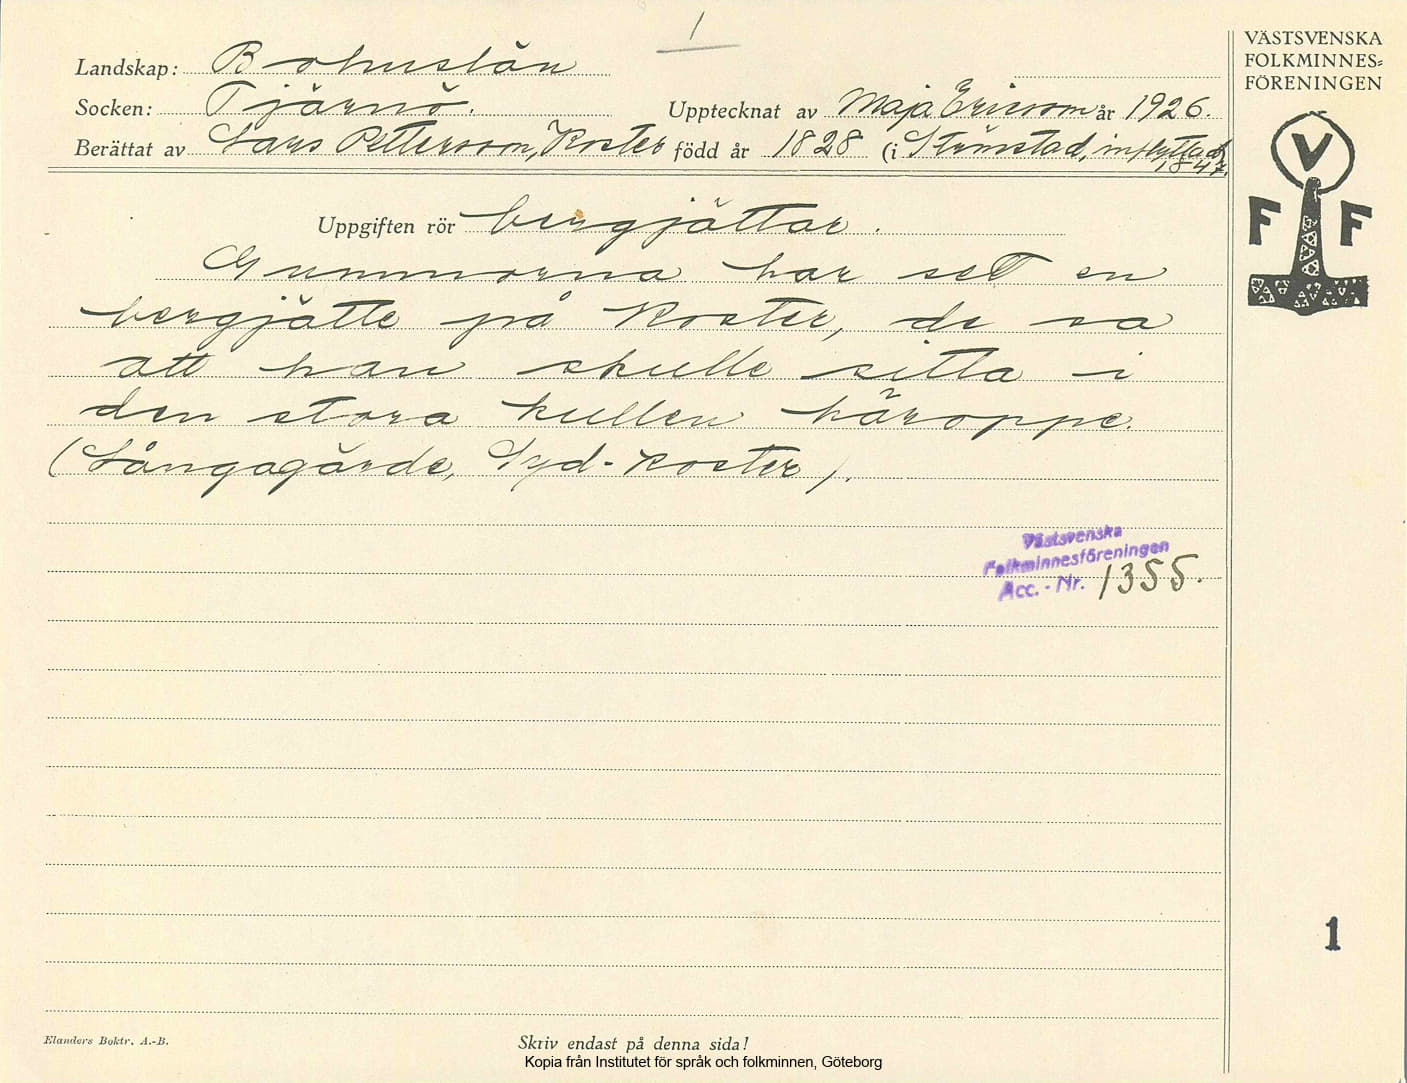 1
Landskap: Bohuslän
Socken: Tjärnö. Upptecknat av Maja Ericson år 1926.
Berättat av Lars Petterson, Koster född år 1828 (i Strömstad, inflyttad
1847.
Uppgiften rör bergjättar.
Gummorna har set en
bergjätte på Koster, de sa
att han skulle sitta i
den stora kullen häroppe.
(Långagärde, Syd-Koster).
Västsvenska
Folkminnesföreningen
Acc. - Nr. 1355.
VÄSTSVENSKA
FOLKMINNES=
FÖRENINGEN
V
F F
1
Elanders Boktr. A.-B.
Skriv endast på denna sida!
Kopia från Institutet för språk och folkminnen, Göteborg